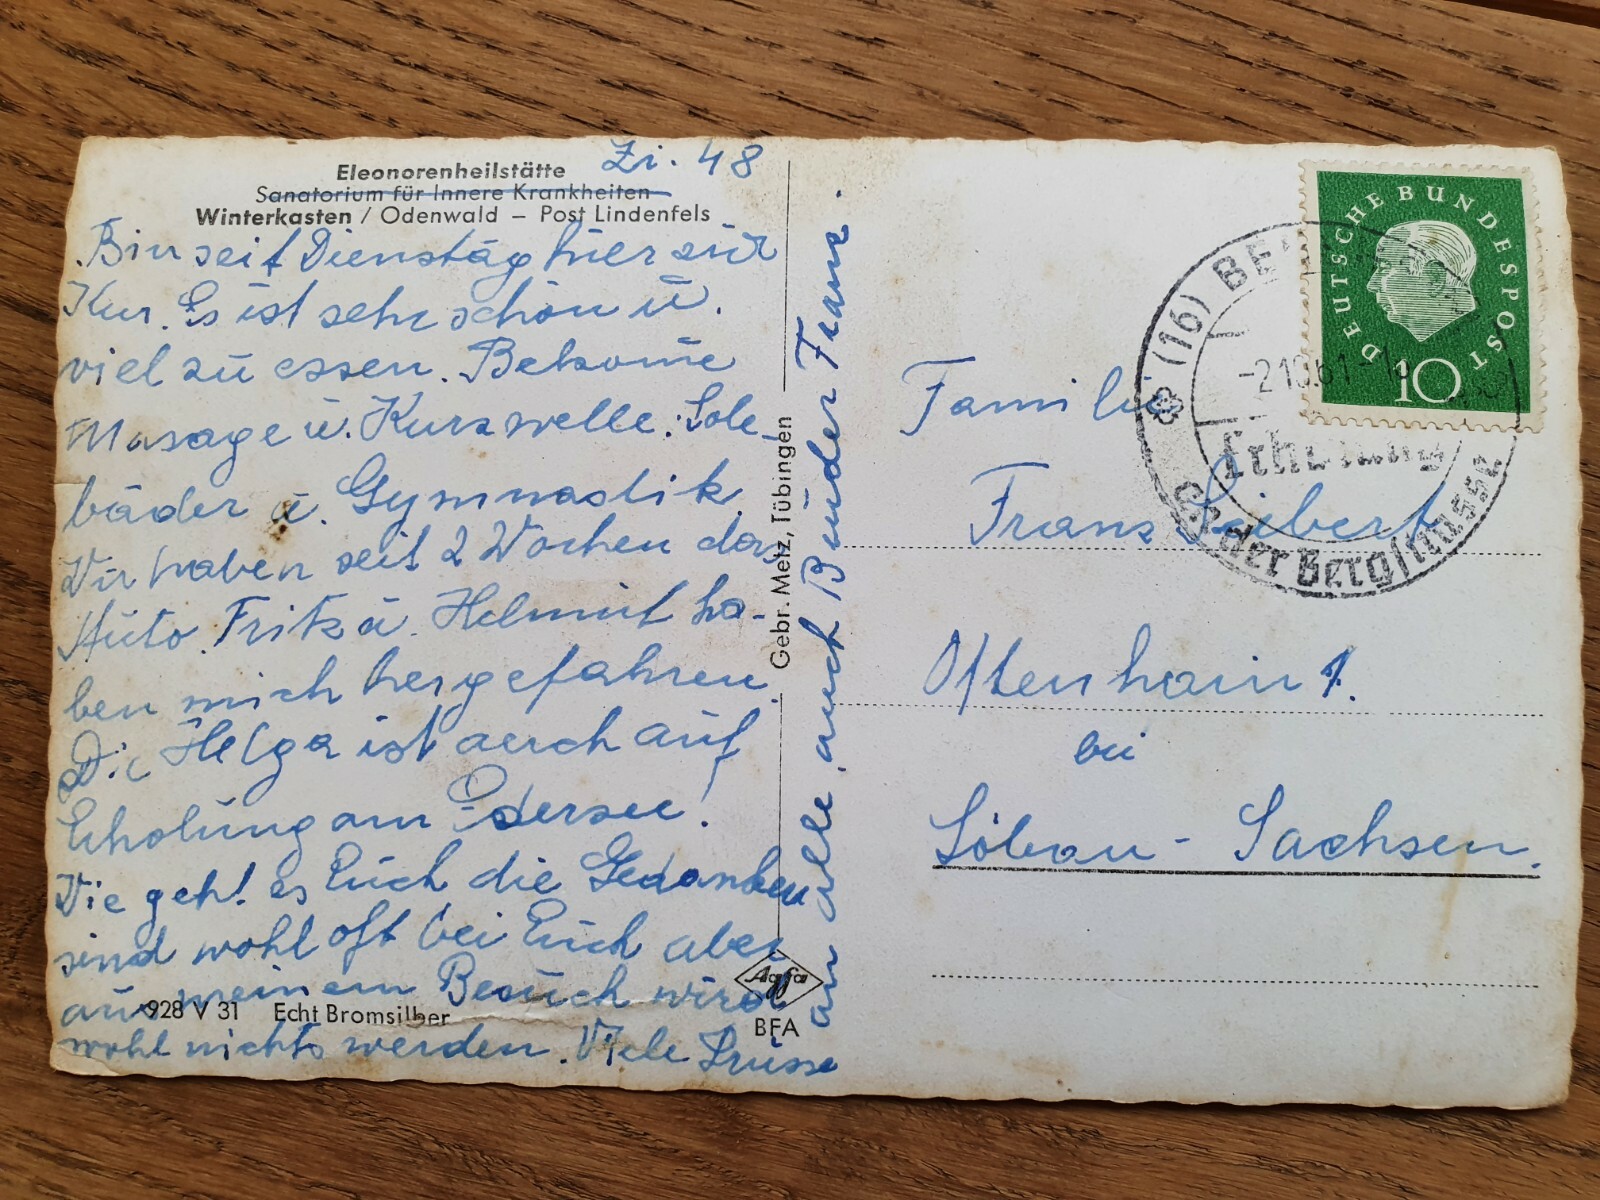 Eleonorenheilstätte
Zi. 48
Sanatorium für Innere Krankheiten
Winterkasten / Odenwald – Post Lindenfels
Bin seit Dienstag hier zur
Kur. Es ist sehr schön u.
viel zu essen. Bekome
Masage u. Kurzwelle. Sole-
bäder u. Gymnastik.
Wir haben seit 2 Wochen das
Auto. Fritz u. Helmut ha-
ben mich hergefahren.
Die Helga ist auch auf
Erholung am Edersee!
Wie geht es Euch die Gedanken
sind wohl oft bei Euch aber
aus meinem Besuch wird
wohl nichts werden. Viele Grüsse
an alle, auch Bruder Franz.
928 V 31 Echt Bromsilber
Gebr. Metz, Tübingen
Agfa
BFA
DEUTSCHE BUNDESPOST
10
(16) BE
-2.10.61-
Erholung
a.d. Bergstrasse
Familie
Franz Seibert
Ottenhain 1.
bei
Löbau - Sachsen.